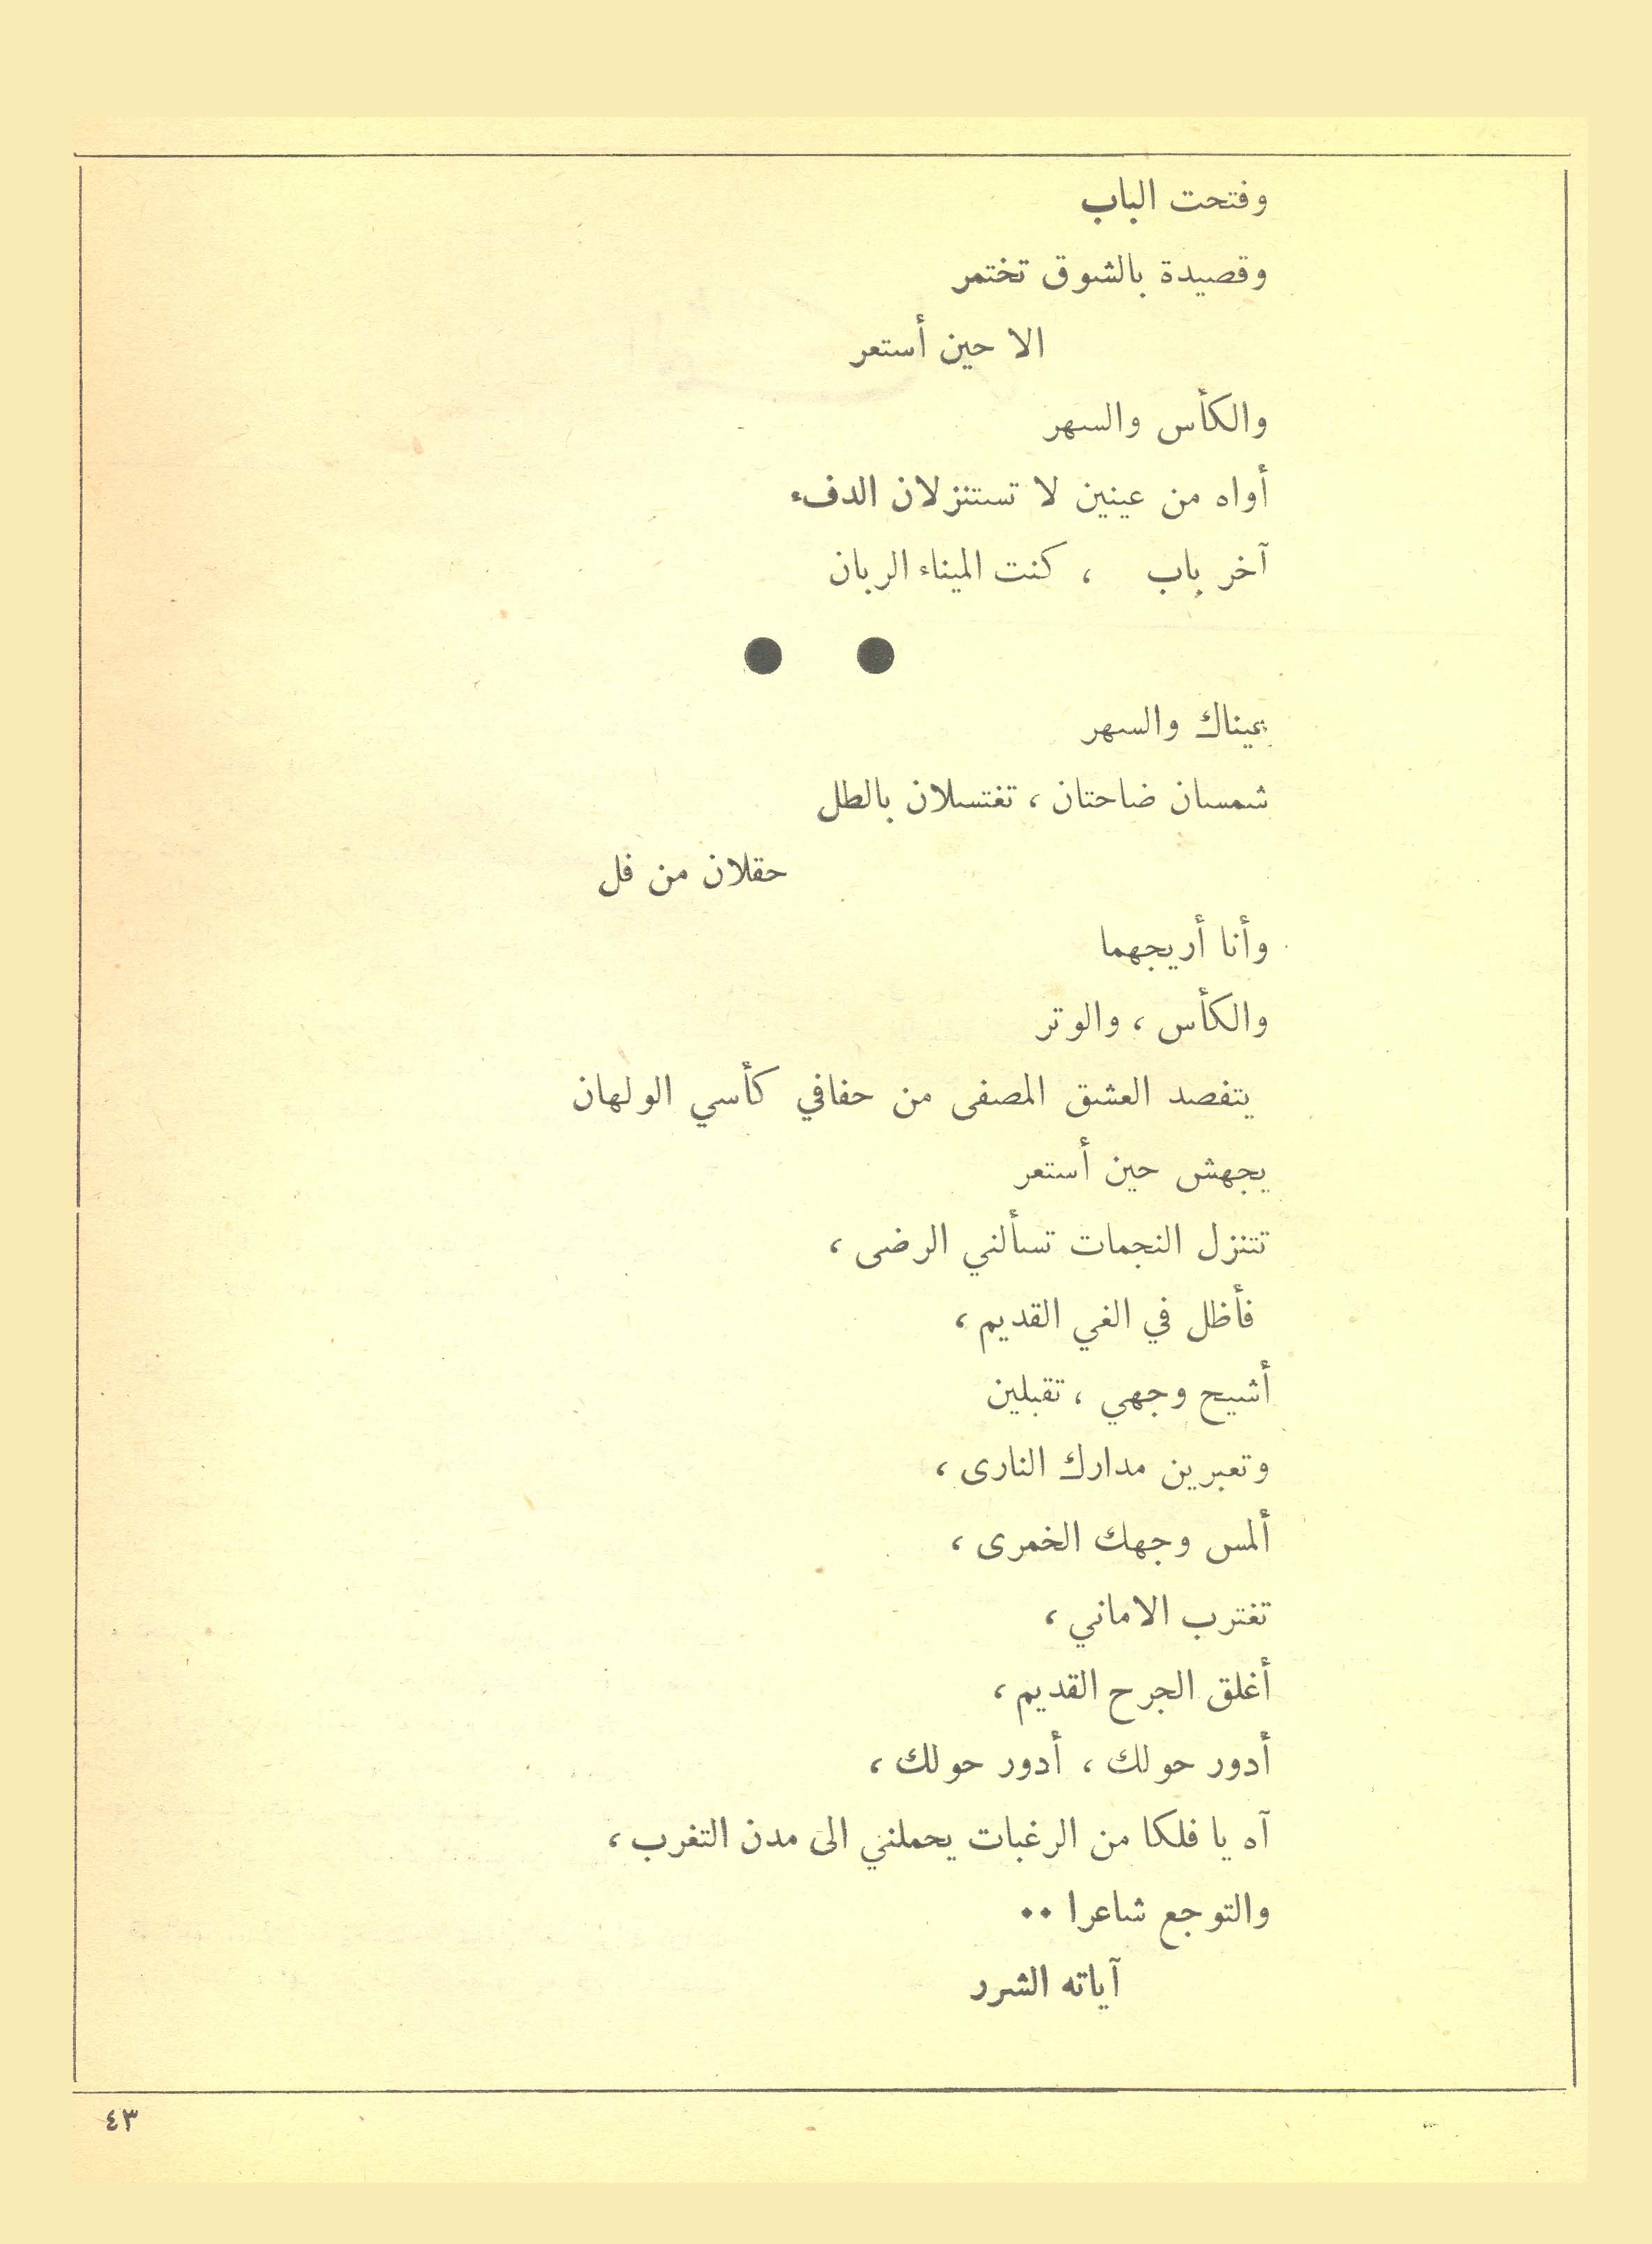 وفتحت الباب
وقصيدة بالشوق تختمر
الا حين أستعر
والكأس والسهر
أواه من عينين لا تستنزلان الدفء
آخر باب ، كنت الميناء الربان
عيناك والسهر
شمسان ضاحتان ، تغتسلان بالطل
حقلان من فل
وأنا أريجهما
والكأس ، والوتر
يتفصد العشق المصفى من حفافي كأسي الولهان
يجهش حين أستعر
تتنزل النجمات تسألني الرضى ،
فأظل في الغي القديم ،
أشيح وجهي ، تقبلين
وتعبرين مدارك النارى ،
ألمس وجهك الخمرى ،
تغترب الاماني ،
أغلق الجرح القديم ،
أدور حولك ، أدور حولك ،
آه يا فلكا من الرغبات يحملني الى مدن التغرب ،
والتوجع شاعرا ••
آياته الشرر
٤٣